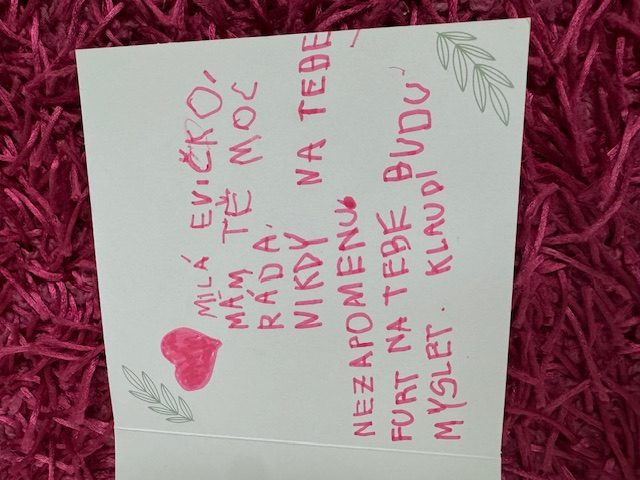 MILÁ EVIČKO,
MÁM TĚ MOC
RÁDA.
NIKDY NA TEBE
NEZAPOMENU.
FURT NA TEBE BUDU
MYSLET. KLAUDI